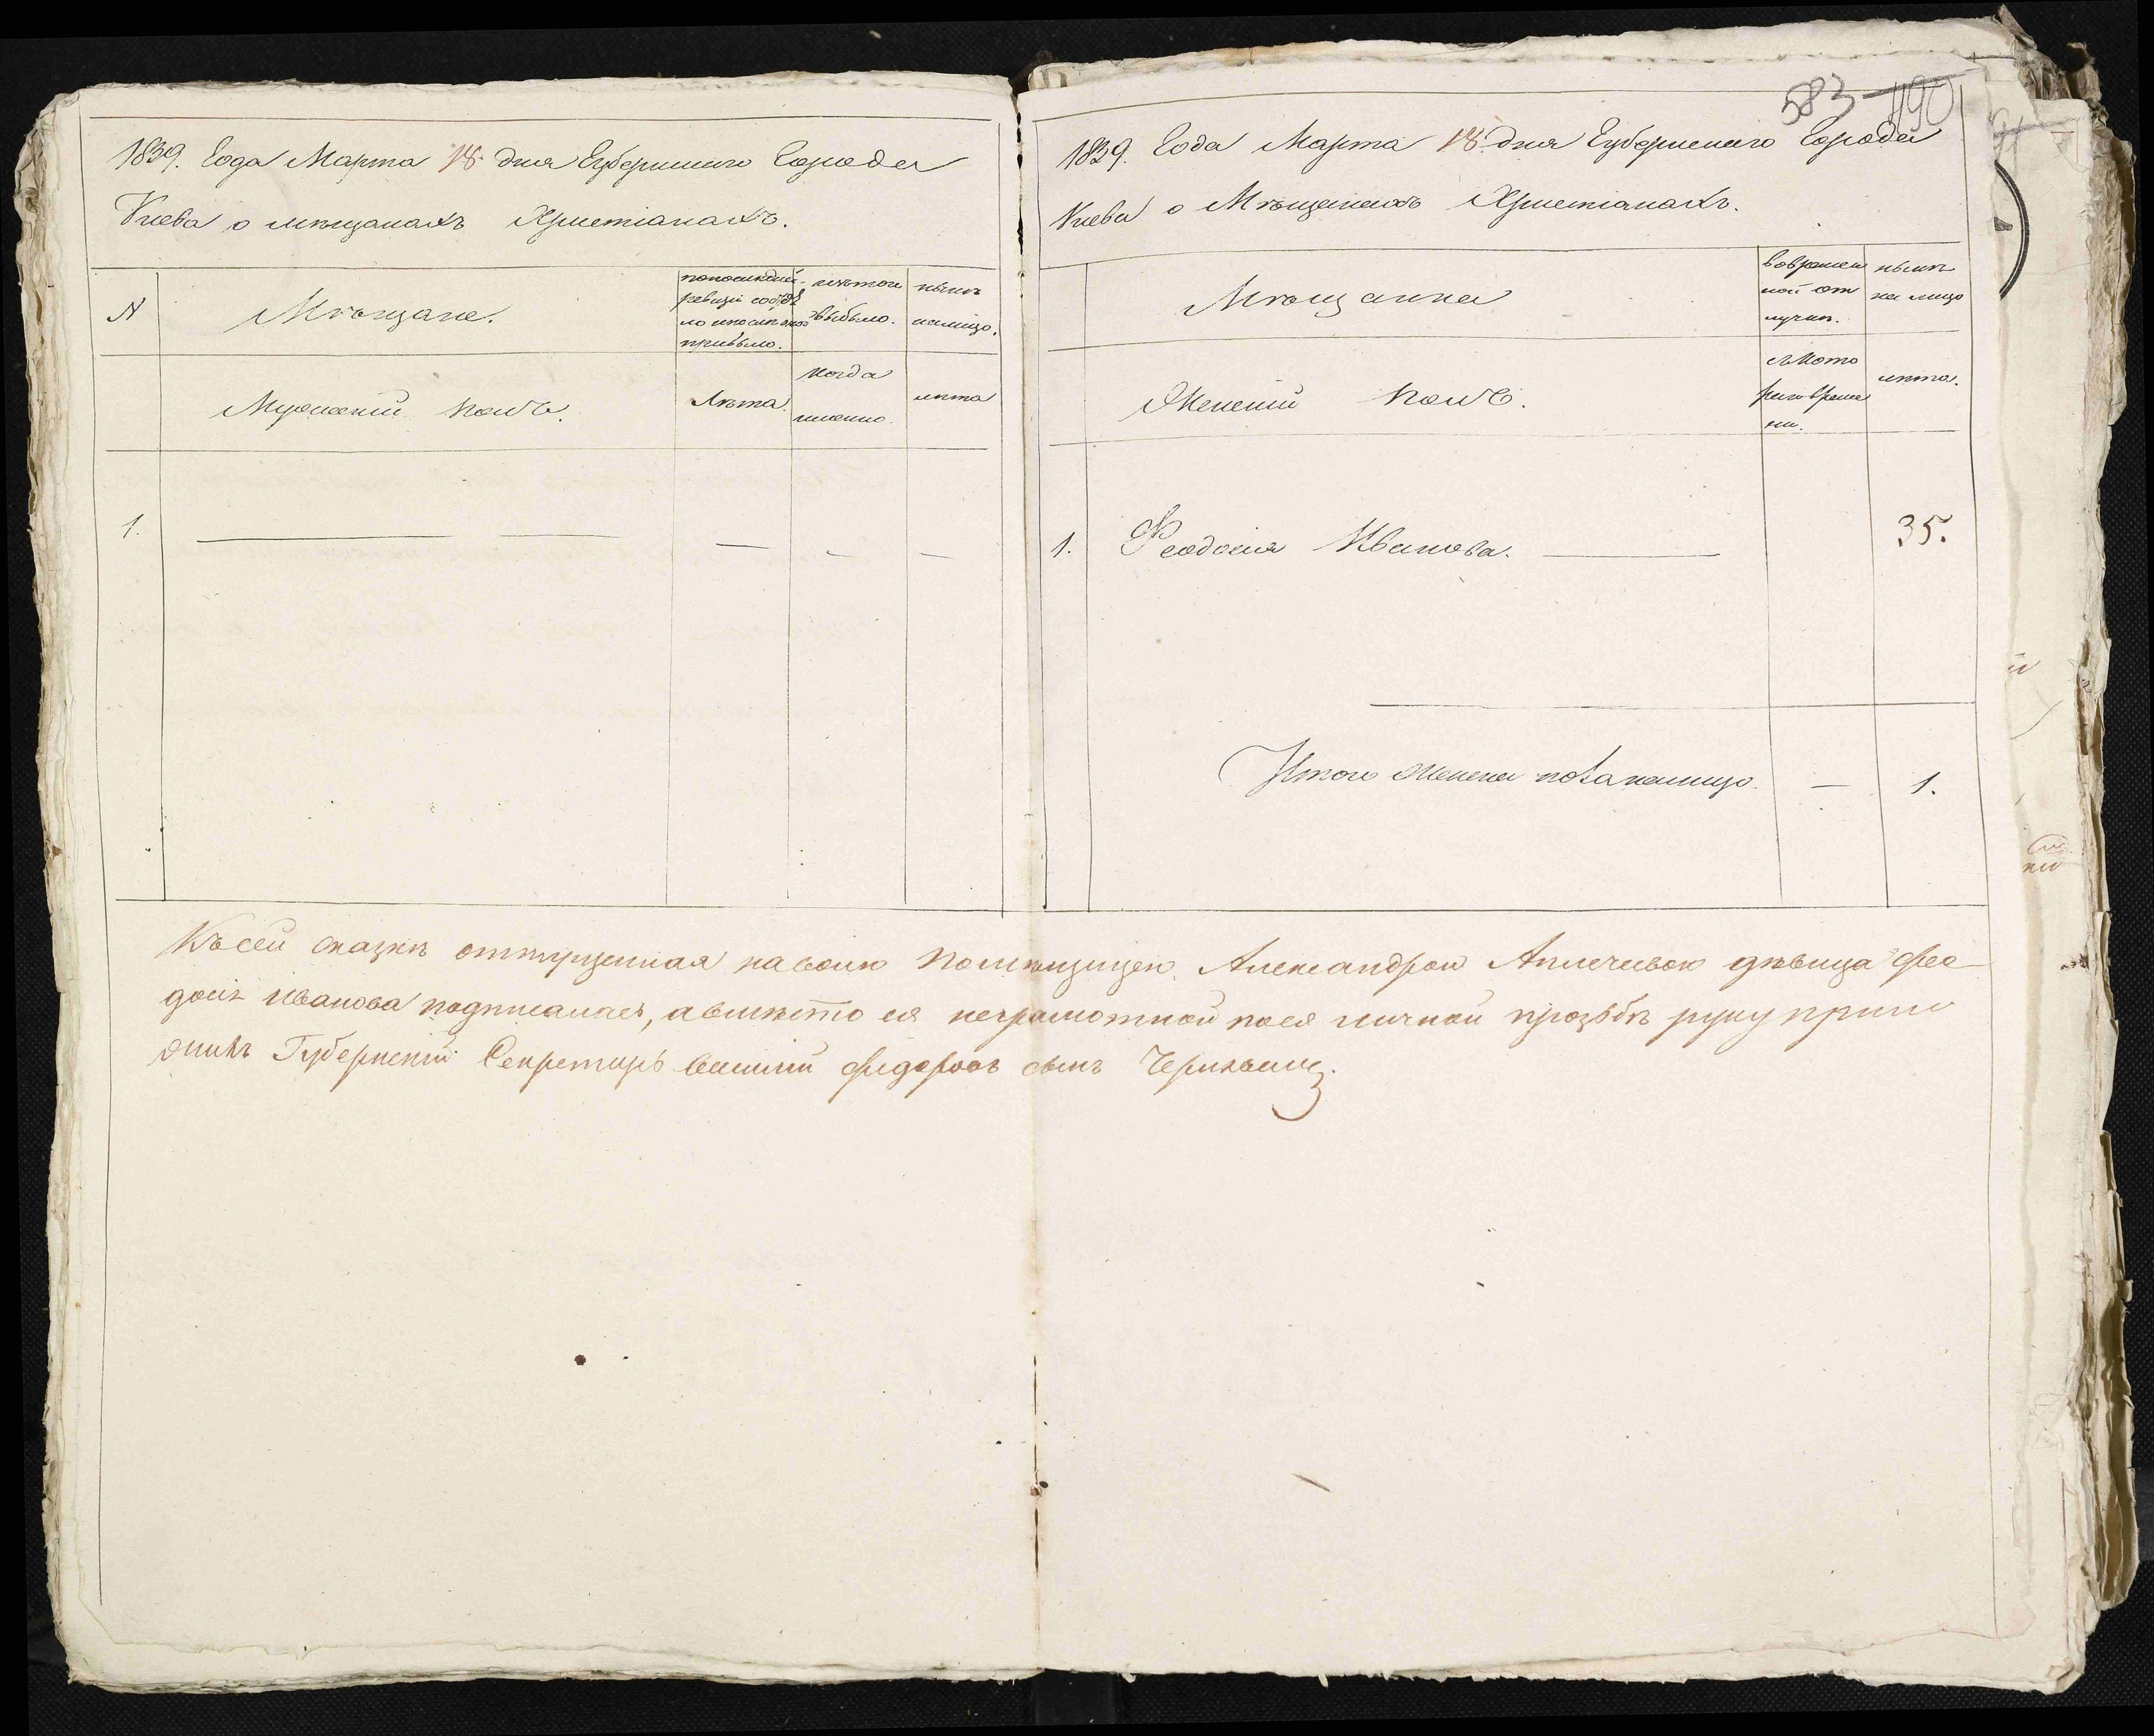 1839. Года Марта 18 дня Губернскаго Города
Кіева о мѣщанахъ Христіанахъ.
N
Мѣщане.
по последней
ревизіи состоя
ло и после оной
прибыло.
изъ того
выбыло.
нынѣ
налицо.
Мужескій полъ.
Лѣта.
когда
именно.
лѣта
1.
583 490
1839. Года Марта 18 дня Губернскаго Города
Кіева о Мѣщанахъ Христіанахъ.
Мѣщанки
во времен
ной от
лучкѣ.
нынѣ
на лицо
Женскій полъ.
съ кото
раго време
ни.
лѣта.
1. Феодосія Иванова. 35.
Итого женска пола налицо. 1.
Къ сей сказкѣ отпущенная на волю Помѣщицею Александрою дѣвица Фео
досія Иванова подписалась, а вмѣсто ея неграмотной по ея личной прозьбѣ руку прило
жилъ Губернскій Секретарь Василій Федоровъ сынъ